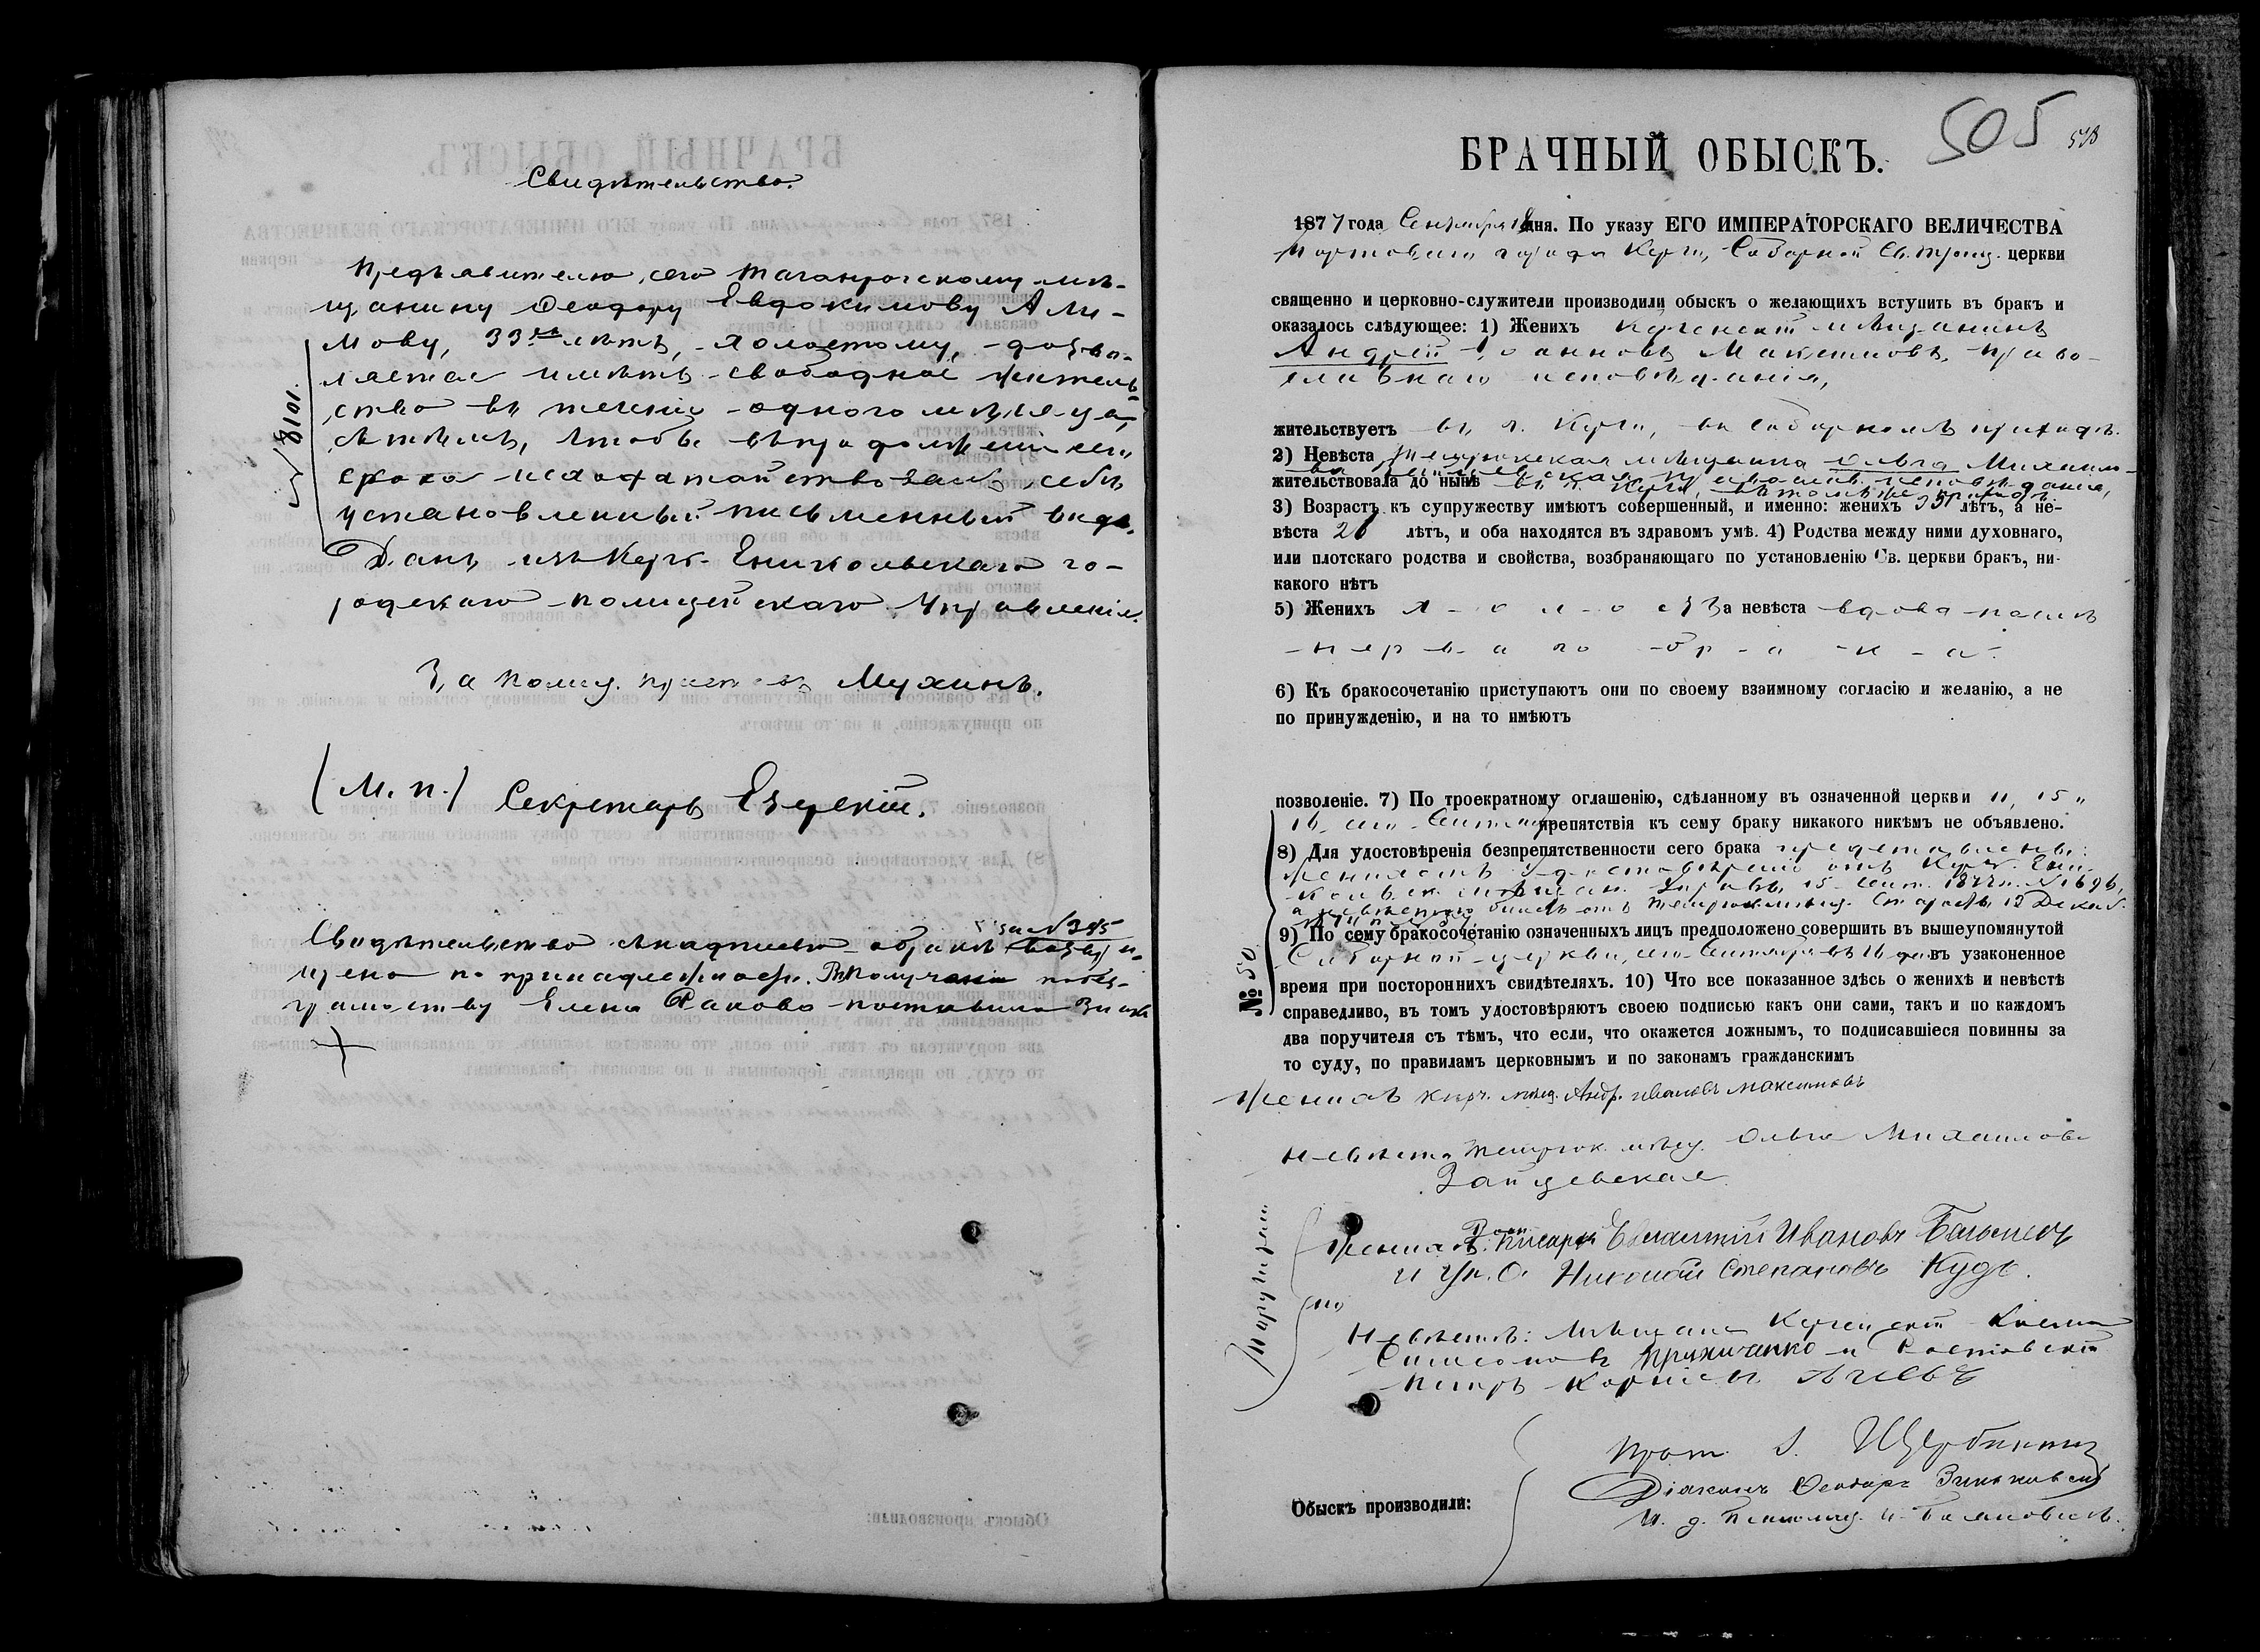 Свидѣтельство.
Предъявителю сего Таганрогскому мѣ-
щанину Ѳеодору Евдокимову Али-
мову, 33 лѣтъ, холостому, дозво-
ляется имѣть свободное житель-
ство въ теченіе одного мѣсяца,
съ тѣмъ, чтобы въ продолженіи сего
срока исходатайствовалъ себѣ
установленный письменный видъ.
Данъ изъ Керчь-Еникольскаго го-
родскаго полицейскаго Управленія.
№ 1018
За полиц. пристава Мухинъ.
(М. п.) Секретарь Езерскій.
за № 385
Свидѣтельство съ надписью обратно возвра-
щено по принадлежности. Въ полученіи
грамоству Елена Ракова поставила знакъ
+
505
БРАЧНЫЙ ОБЫСКЪ.
1877 года Сентября 18 дня. По указу ЕГО ИМПЕРАТОРСКАГО ВЕЛИЧЕСТВА
Портоваго города Керчи, Соборной Св. Троиц. церкви
священно и церковно-служители производили обыскъ о желающихъ вступить въ бракъ и
оказалось слѣдующее: 1) Женихъ Керченскій мѣщанинъ
Андрей Іоанновъ Максимовъ, право-
славнаго исповѣданія,
жительствуетъ въ г. Керчи, въ Соборномъ приходѣ.
2) Невѣста Темрюкская мѣщанка Ольга Михаил-
жительствовала до нынѣ въ г. Керчи, въ томъ же приходѣ.
3) Возрастъ къ супружеству имѣютъ совершенный, и именно: женихъ лѣтъ, а не-
вѣста лѣтъ, и оба находятся въ здравомъ умѣ. 4) Родства между ними духовнаго,
или плотскаго родства и свойства, возбраняющаго по установленію Св. церкви бракъ, ни-
какого нѣтъ
5) Женихъ холостъ а невѣста вдова послѣ
перваго брака.
6) Къ бракосочетанію приступаютъ они по своему взаимному согласію и желанію, а не
по принужденію, и на то имѣютъ
позволеніе. 7) По троекратному оглашенію, сдѣланному въ означенной церкви 11, 15 и
16 сего Сентября препятствія къ сему браку никакого никѣмъ не объявлено.
8) Для удостовѣренія безпрепятственности сего брака представлены:
женихомъ удостовѣреніе отъ Керчь-Ени-
кольск. мѣщан. Управы, 15 Сент. 1877 г. № 1696,
а невѣстою билетъ отъ Темрюк. мѣщ. Старосты 12 Декаб.
№ 50
9) По сему бракосочетанію означенныхъ лицъ предположено совершить въ вышеупомянутой
Соборной церкви, сего Сентября 18 дня въ узаконенное
время при постороннихъ свидѣтеляхъ. 10) Что все показанное здѣсь о женихѣ и невѣстѣ
справедливо, въ томъ удостовѣряютъ своею подписью какъ они сами, такъ и по каждомъ
два поручителя съ тѣмъ, что если, что окажется ложнымъ, то подписавшіеся повинны за
то суду, по правиламъ церковнымъ и по законамъ гражданскимъ
Женихъ керч. мѣщ. Андр. Ивановъ Максимовъ
Невѣста Темрюк. мѣщ. Ольга Михаилова
Зайцевская
Поручители
по
Женихѣ: писарь Евлампій Ивановъ
и Ун. О. Николай Степановъ Кудь.
Невѣстѣ: мѣщане Керченскій Косма
Симеоновъ и Ростовскій
Петръ
Прот. І. Щербинин
Обыскъ производили:
Діаконъ Ѳеодоръ Зиньковскій
И. д. Псаломщ. И.